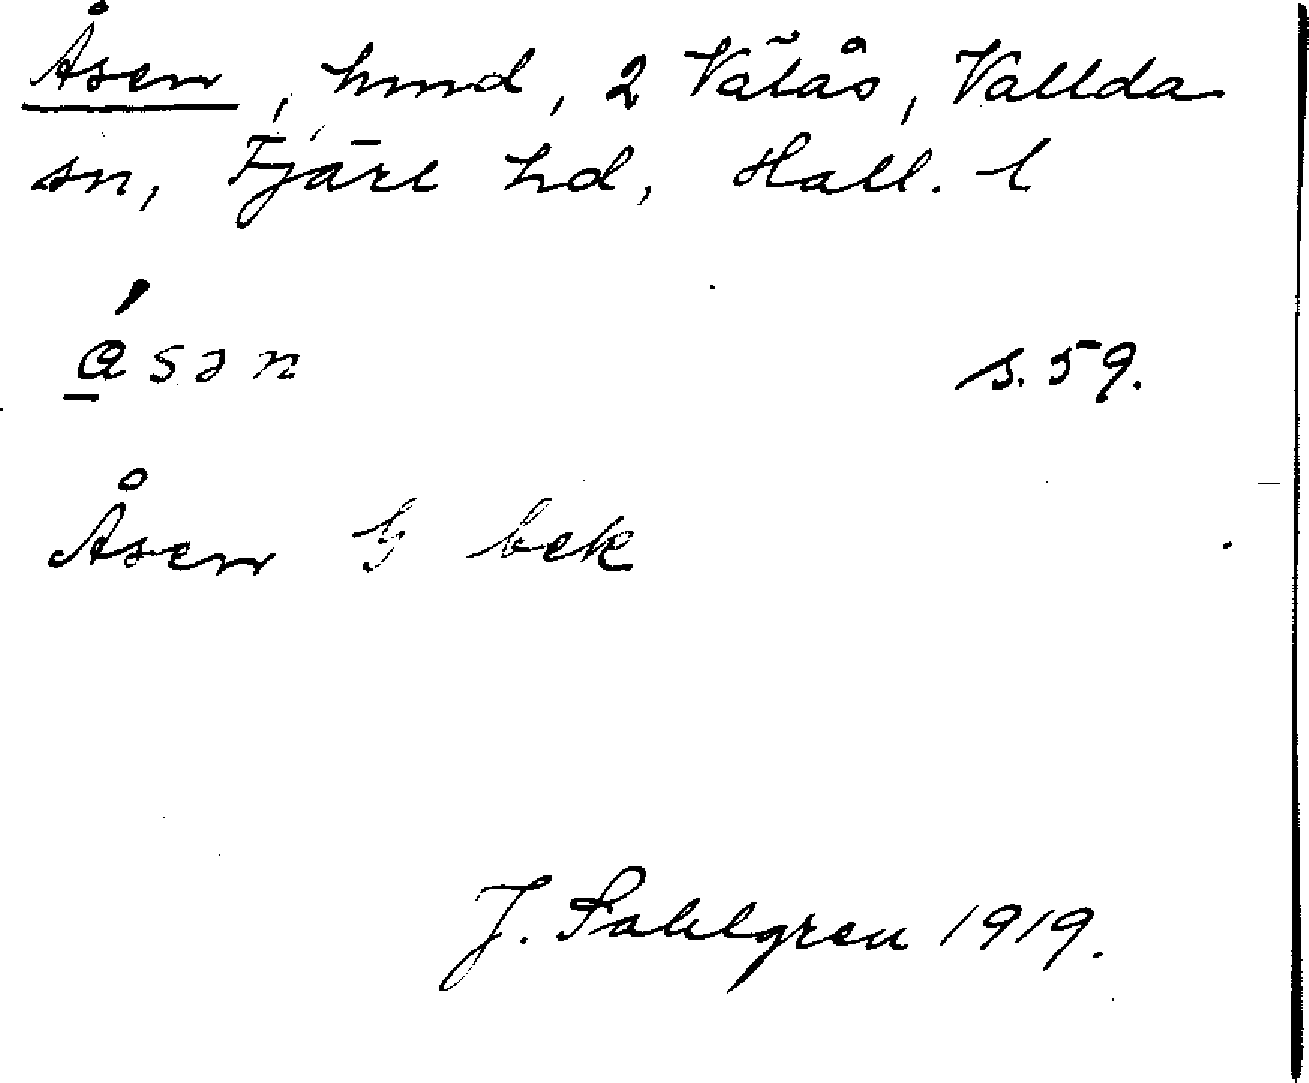 Åsen, hmd, 2 Välås, Vallda
sn, Fjäre hd, Hall. l
ásən s. 59.
Åsen bek
J. Sahlgren 1919.